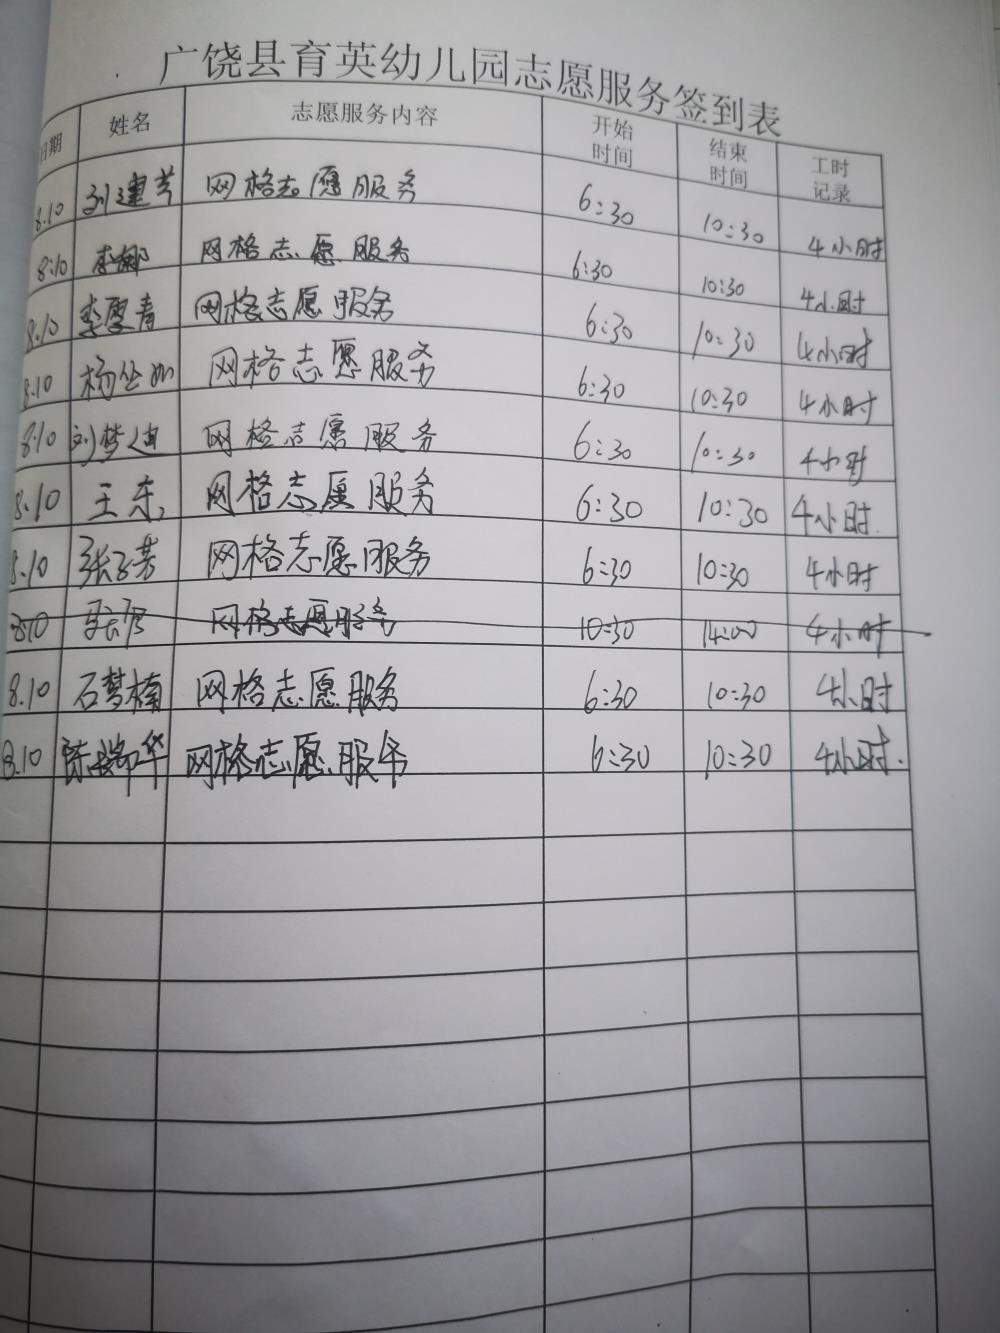 广饶县育英幼儿园志愿服务签到表
日期 姓名 志愿服务内容 开始时间 结束时间 工时记录
8.10 刘建芳 网格志愿服务 6:30 10:30 4小时
8:10 李娜 网格志愿服务 6:30 10:30 4小时
8.10 李厦青 网格志愿服务 6:30 10:30 4小时
8.10 杨 网格志愿服务 6:30 10:30 4小时
8.10 刘梦迪 网格志愿服务 6:30 10:30 4小时
8.10 王东 网格志愿服务 6:30 10:30 4小时.
8.10 张子芳 网格志愿服务 6:30 10:30 4小时
8.10 网格志愿服务 10:30 14:00 4小时
8.10 石梦楠 网格志愿服务 6:30 10:30 4小时
8.10 陈瑞华 网格志愿服务 6:30 10:30 4小时.